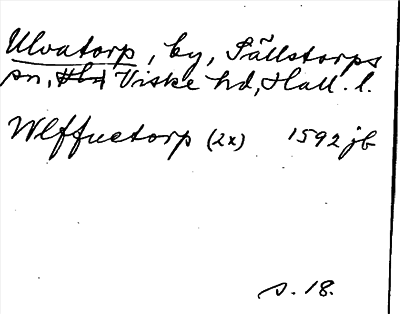 Ulvatorp, by, Sällstorps
sn, Viske hd, Hall. l.
Wlffuetorp (2x) 1592 jb
s. 18.